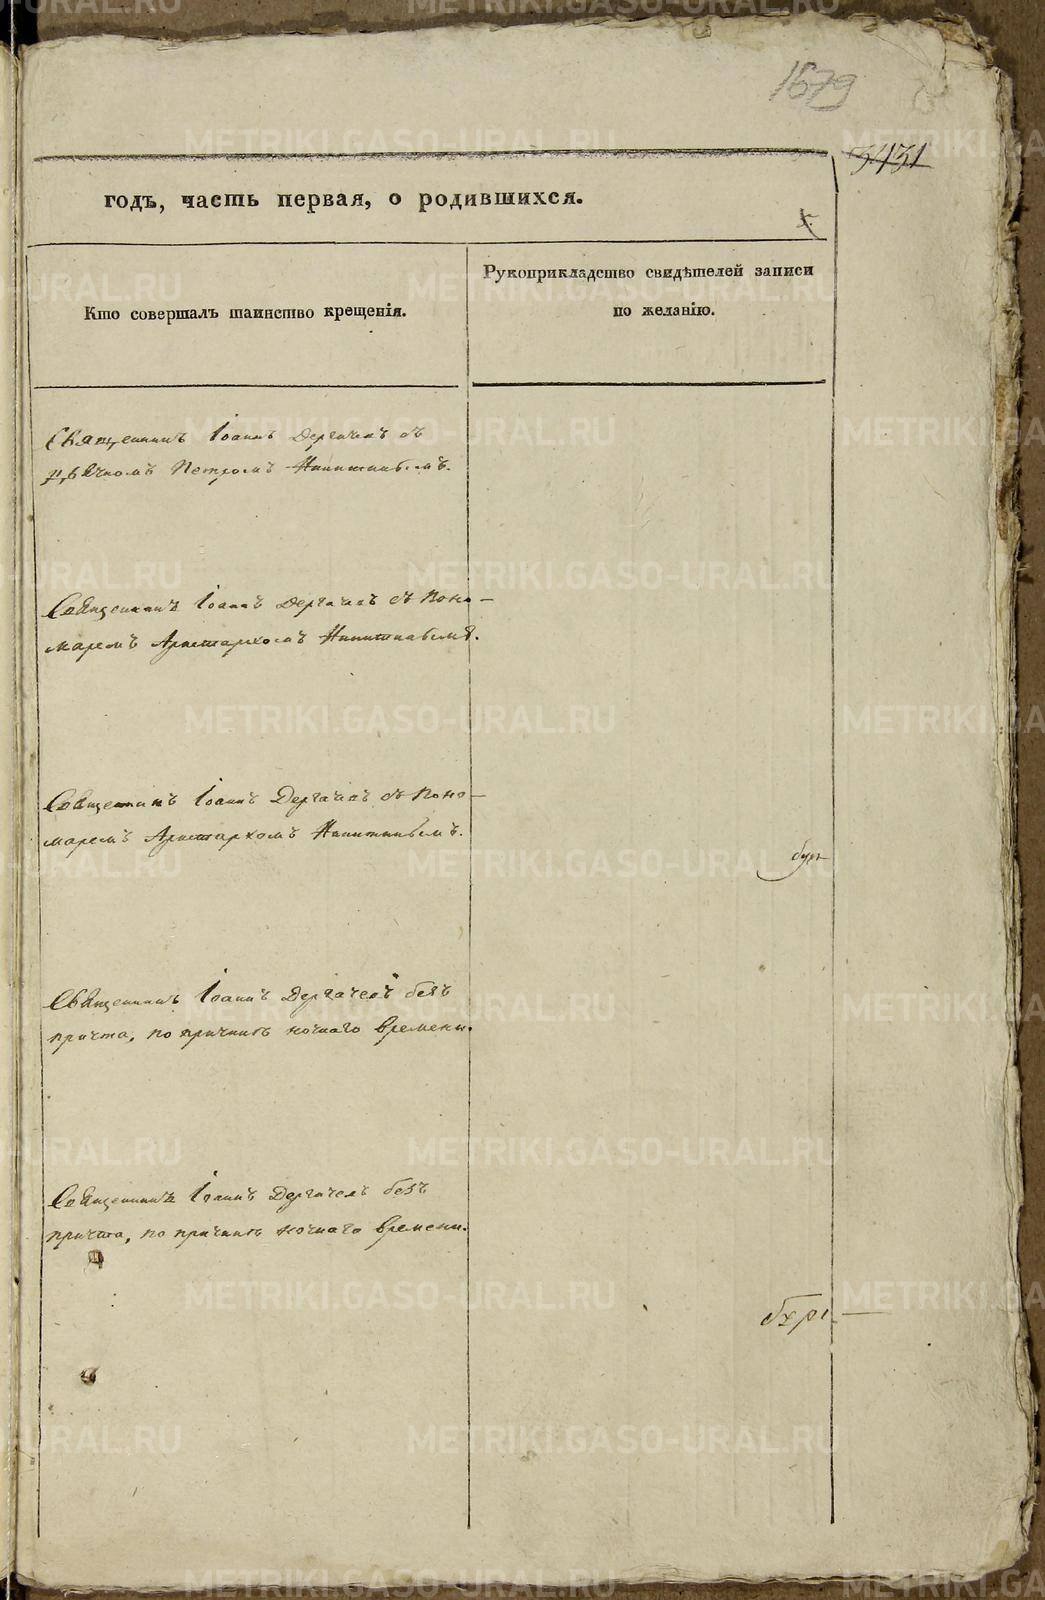 1679
3431
годъ, часть первая, о родившихся.
Кто совершалъ таинство крещенія.
Рукоприкладство свидѣтелей записи
по желанію.
Священникъ Іоаннъ Дергачевъ съ
Дьячкомъ Петромъ Никитинымъ.
Священникъ Іоаннъ Дергачевъ съ Поно-
маремъ Аристархомъ Никитинымъ.
Священникъ Іоаннъ Дергачевъ съ Поно-
маремъ Аристархомъ Никитинымъ.
Священникъ Іоаннъ Дергачевъ безъ
причта, по причинѣ ночнаго времени.
Священникъ Іоаннъ Дергачевъ безъ
причта, по причинѣ ночнаго времени.
METRIKI.GASO-URAL.RU